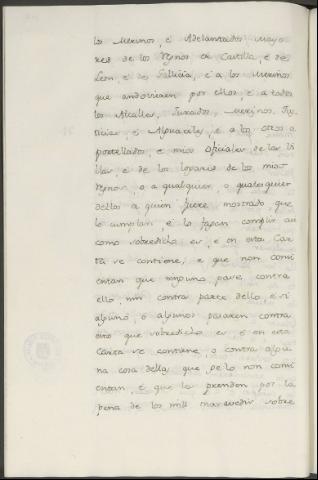 los Merinos, è Adelantados mayo
res de los Reynos de Castilla, è de
Leon, è de Gallicia, è a los Merinos
que andovieren por ellos, è a todos
los Alcalles, Jurados, Merinos, Jus
ticias, è Alguaciles, è a los otros a
portellados, è mios oficiales de las Vi
llas, è de los logares de los mios
Reynos, o a qualquier, o qualesquier
dellos a quien fuere mostrado que
lo cumplan, è lo fagan complir asi
como sobredicho es, è en esta Car
ta se contiene, è que non consi
entan que ninguno pase contra
ello, nin contra parte dello, è si
alguno, o algunos pasaren contra
esto que sobredicho es è en esta
Carta se contiene, o contra algu
na cosa dello, que gelo non consi
entan, è que les prendan por la
pena de los mill maravedis sobre